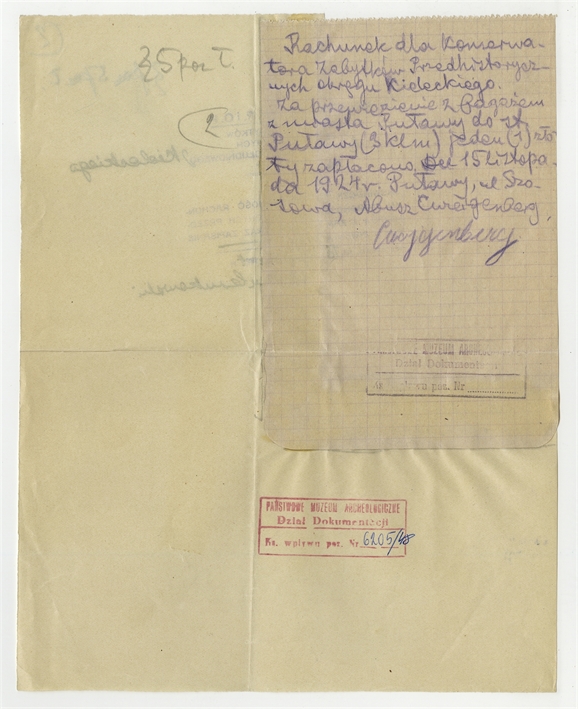 2
Rachunek dla Konserwa-
tora Zabytków Przedhistorycz-
nych okręgu Kieleckiego.
Za przewiezienie z bagażem
z miasta Puławy do st.
Puławy (3 klm) jeden (1) zło-
ty zapłacono. 15 Listopa-
da 1924 r. Puławy, ul Szo-
sowa, Abusz
MUZEUM
Dział Dokumentacji
poz. Nr
PAŃSTWOWE MUZEUM ARCHEOLOGICZNE
Dział Dokumentacji
Ks. wpływu poz. Nr 6205/48